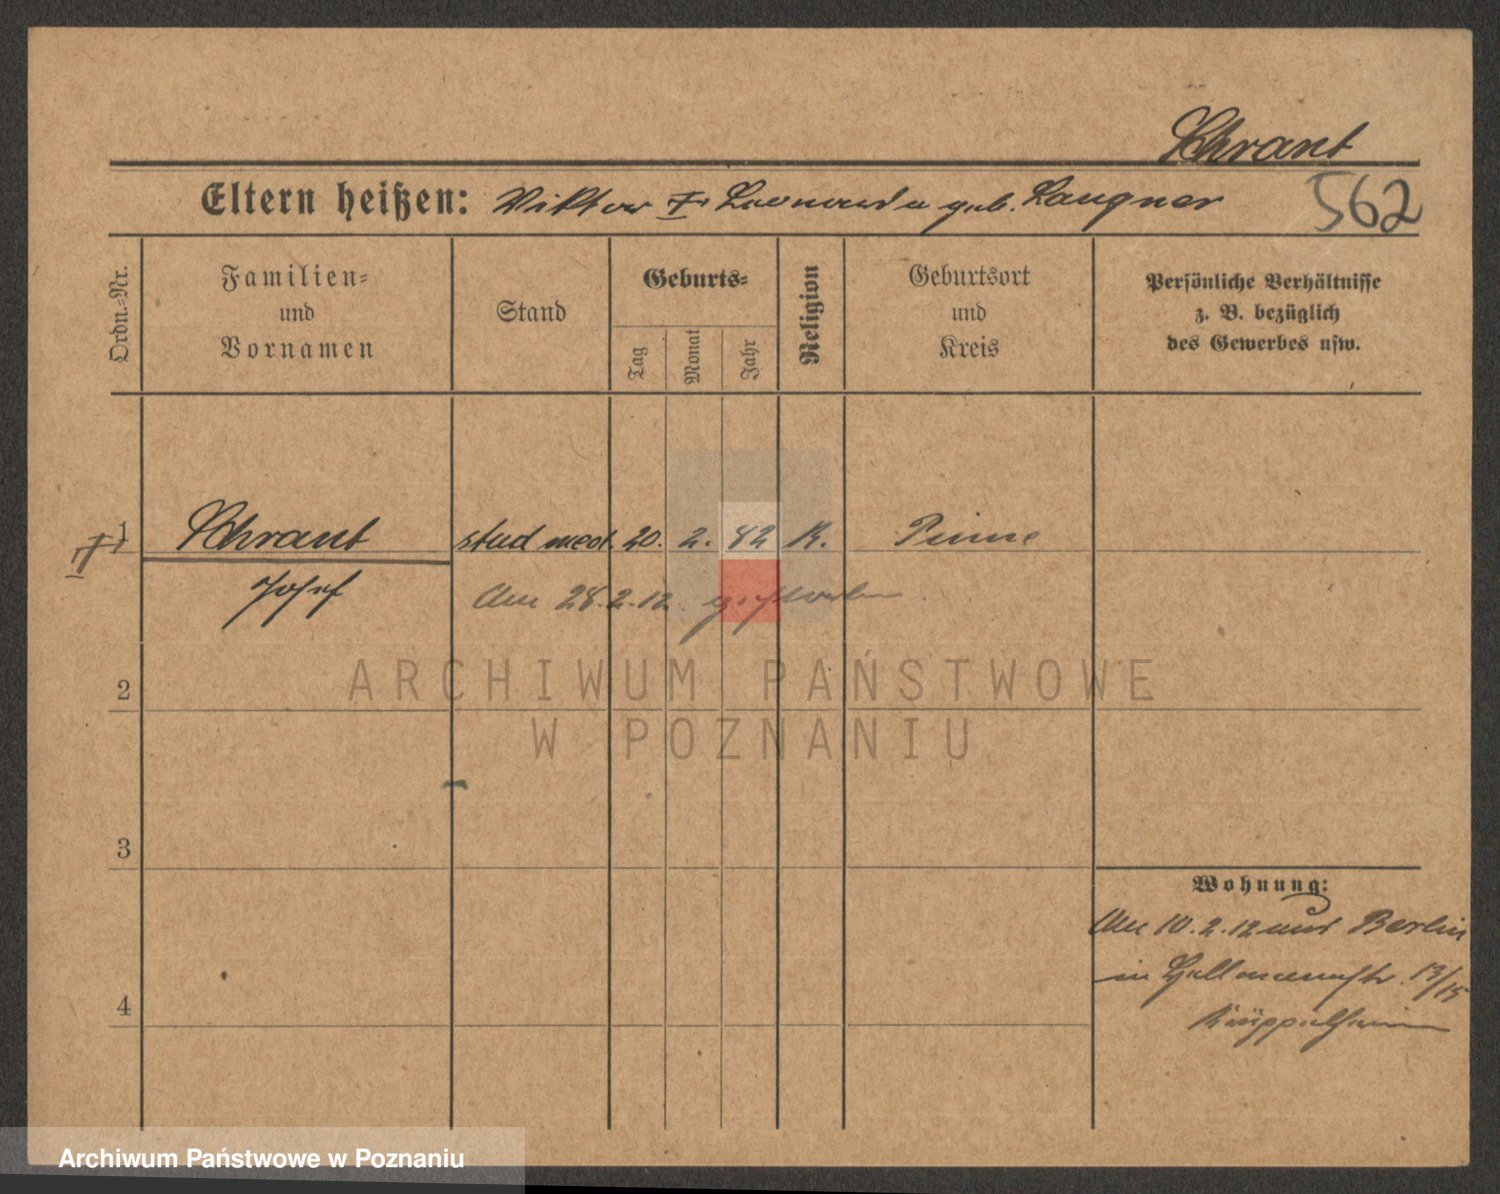 Schrant
Eltern heißen: Viktor † Leonarda geb. Langner
562
Ordn.-Nr.
Familien-
und
Vornamen
Stand
Geburts-
Tag
Monat
Jahr
Religion
Geburtsort
und
Kreis
Persönliche Verhältnisse
z. B. bezüglich
des Gewerbes usw.
1 Schrant stud med. 20. 2. 82 K. Pinne
Josef Am 28.2.12 gestorben
ARCHIWUM PAŃSTWOWE
W POZNANIU
2
3
Wohnung:
Am 10.2.12 aus Berlin
in 13/15
4
Archiwum Państwowe w Poznaniu